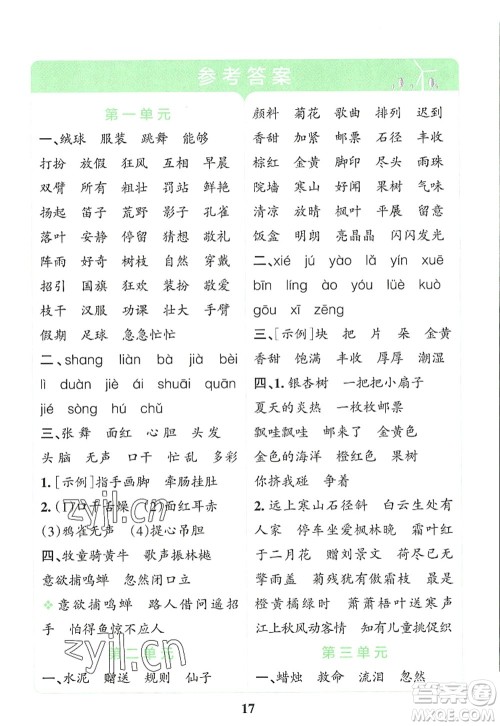 参考答案
第一单元
一、绒球 服装 跳舞 能够
打扮 放假 狂风 互相 早晨
双臂 所有 粗壮 罚站 鲜艳
扬起 笛子 荒野 影子 孔雀
落叶 安静 停留 突然 猜想
阵雨 好奇 树枝 放声 观察
招引 国旗 狂欢 装扮 假如
枝干 汉服 功课 壮大 手臂
假期 足球 急急忙忙
二、shang liàn bà jià
diàn dǎo ái shuāi quān
jié sòng hé chū
三、张 舞 面红 心 胆
头 发 口干 低 多彩
1.[示例]指手画脚 牵肠挂肚
2.(1)口干舌燥 (2)面红耳赤
(3)鸦雀无声 (4)提心吊胆
四、牧童骑黄牛 歌声振林樾
意欲捕鸣蝉 忽然闭口立
意欲捕鸣蝉 路人借问遥招
手 怕得鱼惊不应人
第二单元
一、水泥 赠送 规则 仙子
颜料 菊花 歌曲 排列 迟到
香甜 加紧 邮票 石径 丰收
棕红 金黄 脚印 乐曲 雨珠
院墙 寒山 好闻 果树 气味
清凉 凉爽 枫叶 平展 留意
饭盒 明朗 亮晶晶 闪闪发光
二、xié jú yào lǎ yín
bīn líng āi yóu fēi lüè
gōu xī zēng
三、[示例]块 片 朵 金黄
香甜 饱满 丰收 厚厚 潮湿
四、1.银杏树 一把把小扇子
夏天的炎热 一枚枚邮票
飘哇飘哇 凉爽 金黄色
金色的海洋 菊花仙子
你挤我碰 争着
2.远上寒山石径斜 白云生处有
人家 停车坐爱枫林晚 霜叶红
于二月花 赠刘景文 荷尽已无
擎雨盖 菊残犹有傲霜枝 最是
橙黄橘绿时 萧萧梧叶送寒声
江上秋风动客情 知有儿童挑促织
第三单元
一、蜡烛 救命 流泪 忽然
17